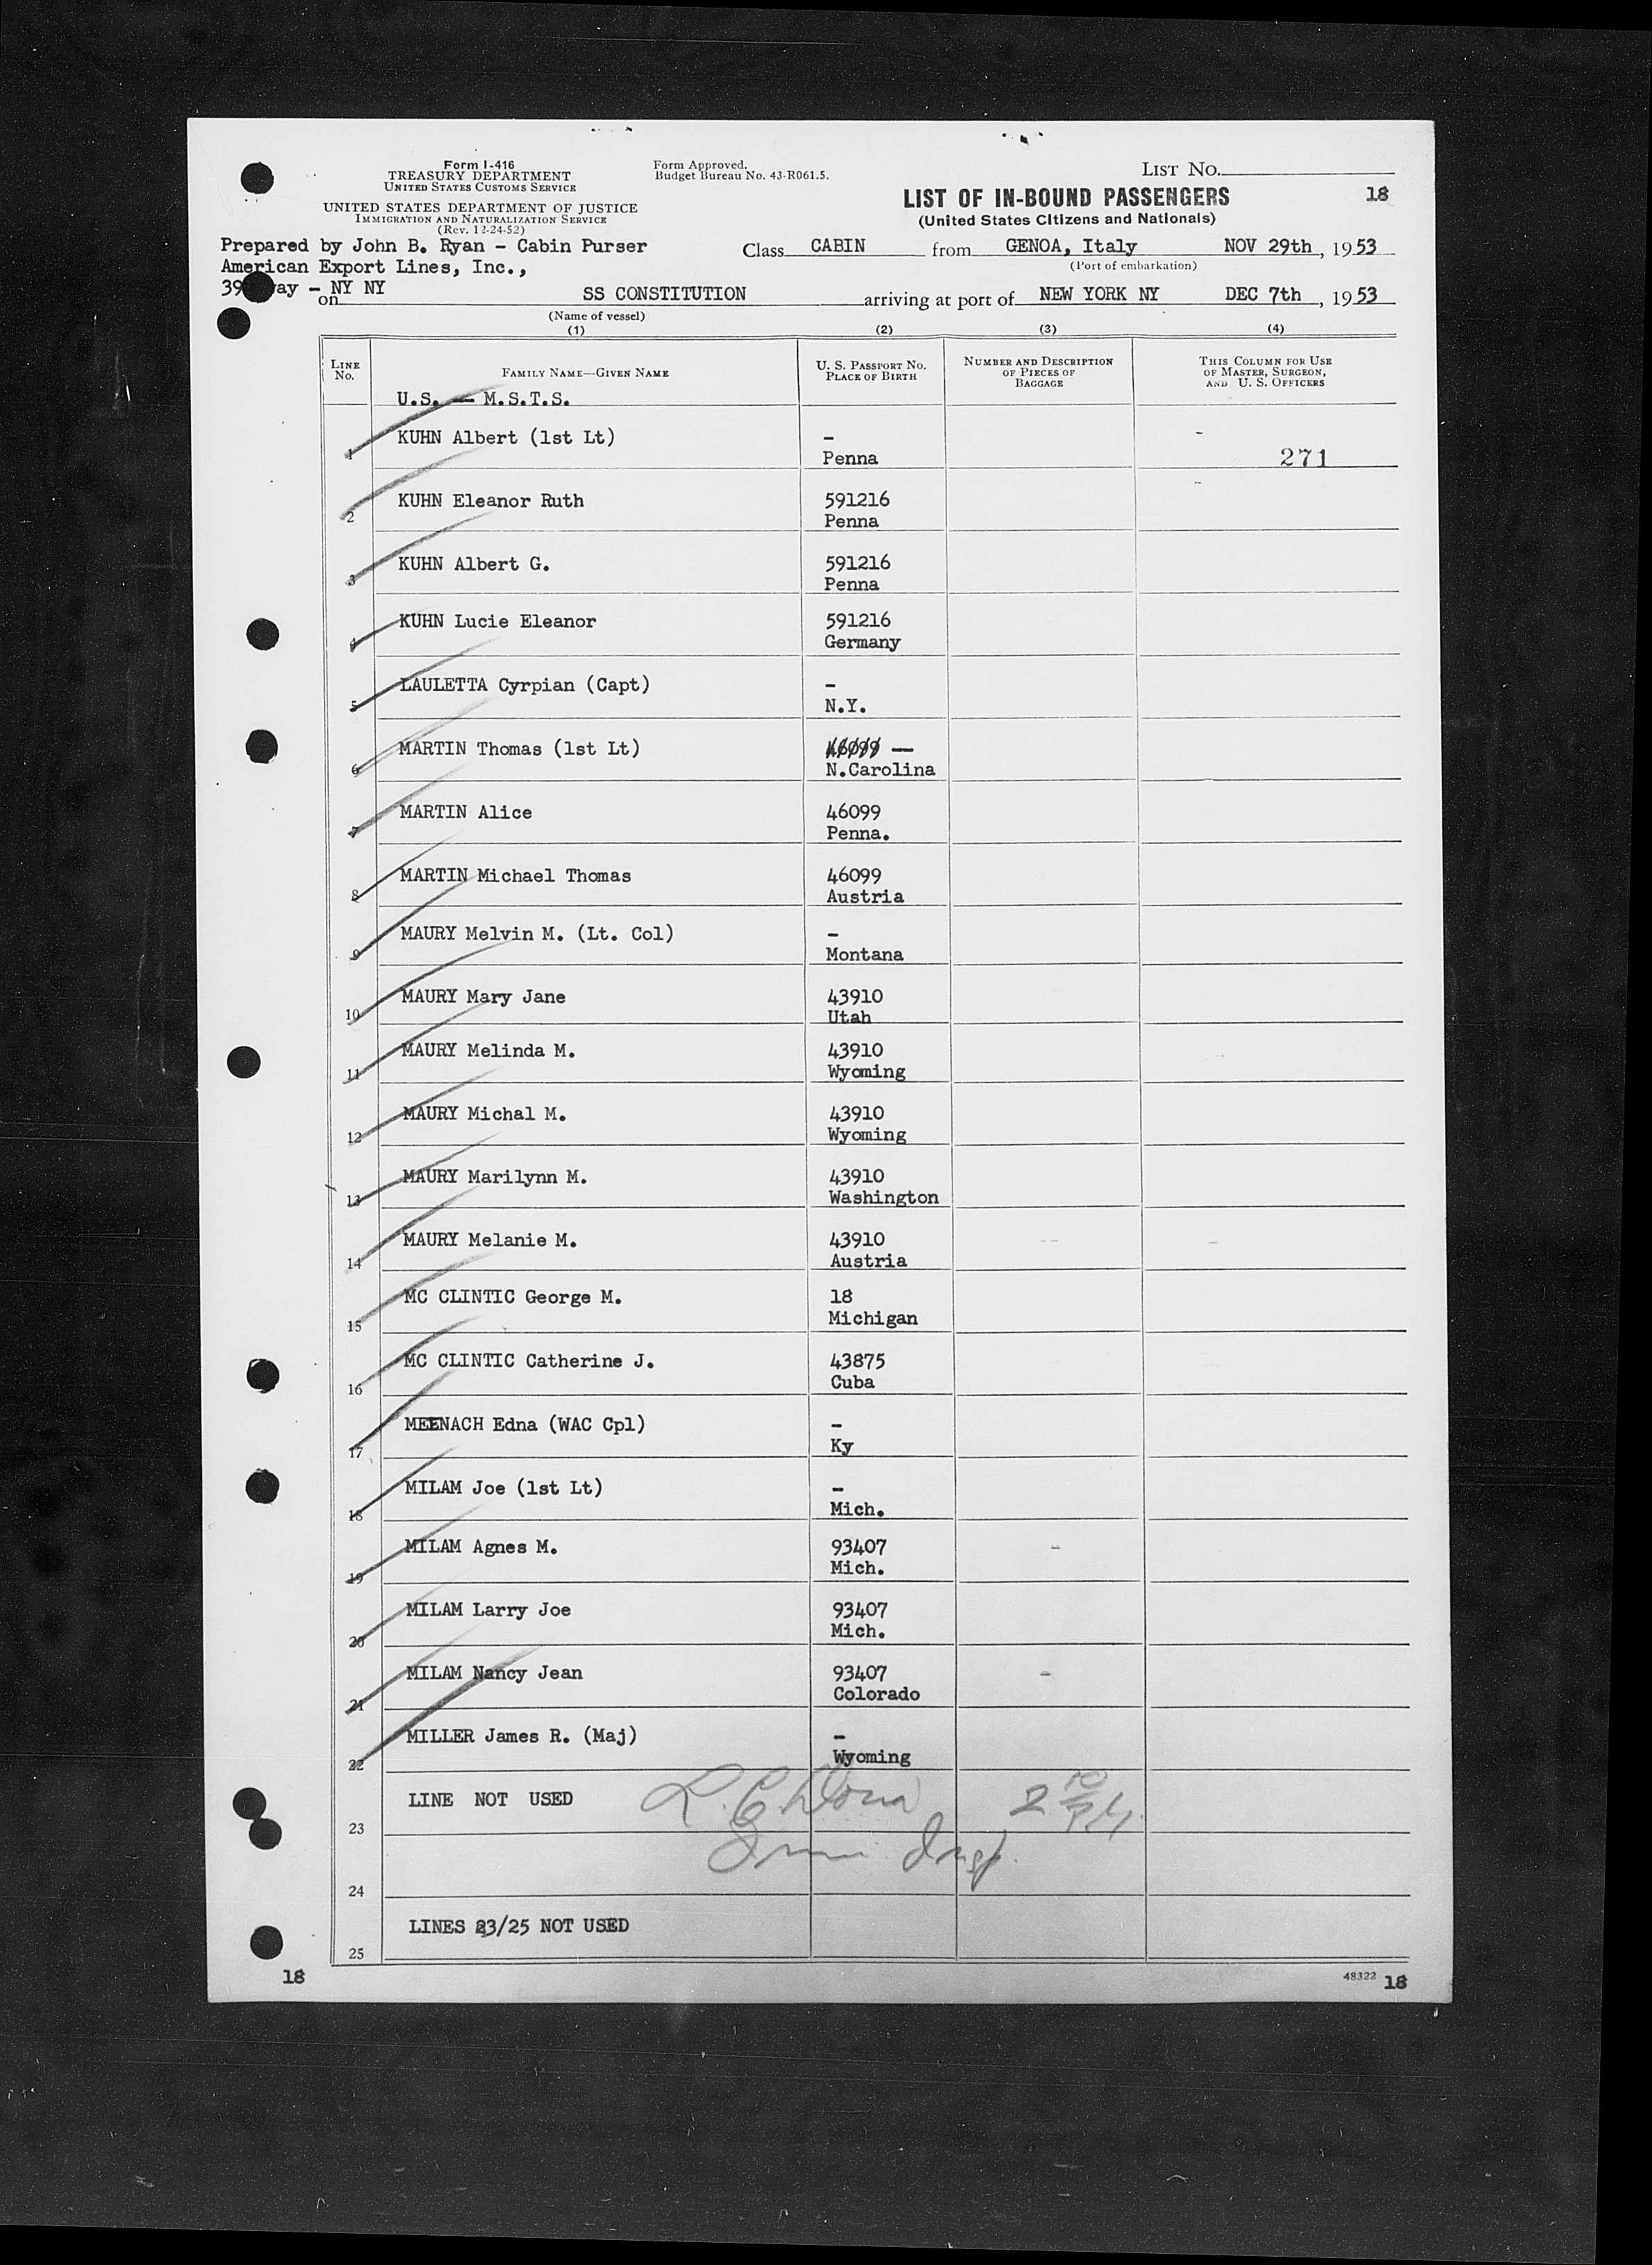 Form I-416
TREASURY DEPARTMENT
UNITED STATES CUSTOMS SERVICE
UNITED STATES DEPARTMENT OF JUSTICE
IMMIGRATION AND NATURALIZATION SERVICE
(Rev. 12-24-52)
Form Approved.
Budget Bureau No. 43-R061.5.
LIST NO.
18
LIST OF IN-BOUND PASSENGERS
(United States Citizens and Nationals)
Prepared by John B. Ryan - Cabin Purser
American Export Lines, Inc.,
39 way - NY NY
Class CABIN from GENOA, Italy NOV 29th, 1953
(Port of embarkation)
on SS CONSTITUTION arriving at port of NEW YORK NY DEC 7th, 1953
(Name of vessel)
(1) (2) (3) (4)
LINE NO. FAMILY NAME—GIVEN NAME U. S. PASSPORT NO. PLACE OF BIRTH NUMBER AND DESCRIPTION OF PIECES OF BAGGAGE THIS COLUMN FOR USE OF MASTER, SURGEON, AND U. S. OFFICERS
U.S. — M.S.T.S.
1 KUHN Albert (1st Lt) -
Penna 271
2 KUHN Eleanor Ruth 591216
Penna
3 KUHN Albert G. 591216
Penna
4 KUHN Lucie Eleanor 591216
Germany
5 LAULETTA Cyrpian (Capt) -
N.Y.
6 MARTIN Thomas (1st Lt) 46099 —
N.Carolina
7 MARTIN Alice 46099
Penna.
8 MARTIN Michael Thomas 46099
Austria
9 MAURY Melvin M. (Lt. Col) -
Montana
10 MAURY Mary Jane 43910
Utah
11 MAURY Melinda M. 43910
Wyoming
12 MAURY Michal M. 43910
Wyoming
13 MAURY Marilynn M. 43910
Washington
14 MAURY Melanie M. 43910
Austria
15 MC CLINTIC George M. 18
Michigan
16 MC CLINTIC Catherine J. 43875
Cuba
17 MEENACH Edna (WAC Cpl) -
Ky
18 MILAM Joe (1st Lt) -
Mich.
19 MILAM Agnes M. 93407
Mich.
20 MILAM Larry Joe 93407
Mich.
21 MILAM Nancy Jean 93407
Colorado
22 MILLER James R. (Maj) -
Wyoming
23 LINE NOT USED
Imm. Insp.
24
25 LINES 23/25 NOT USED
18
48322 18